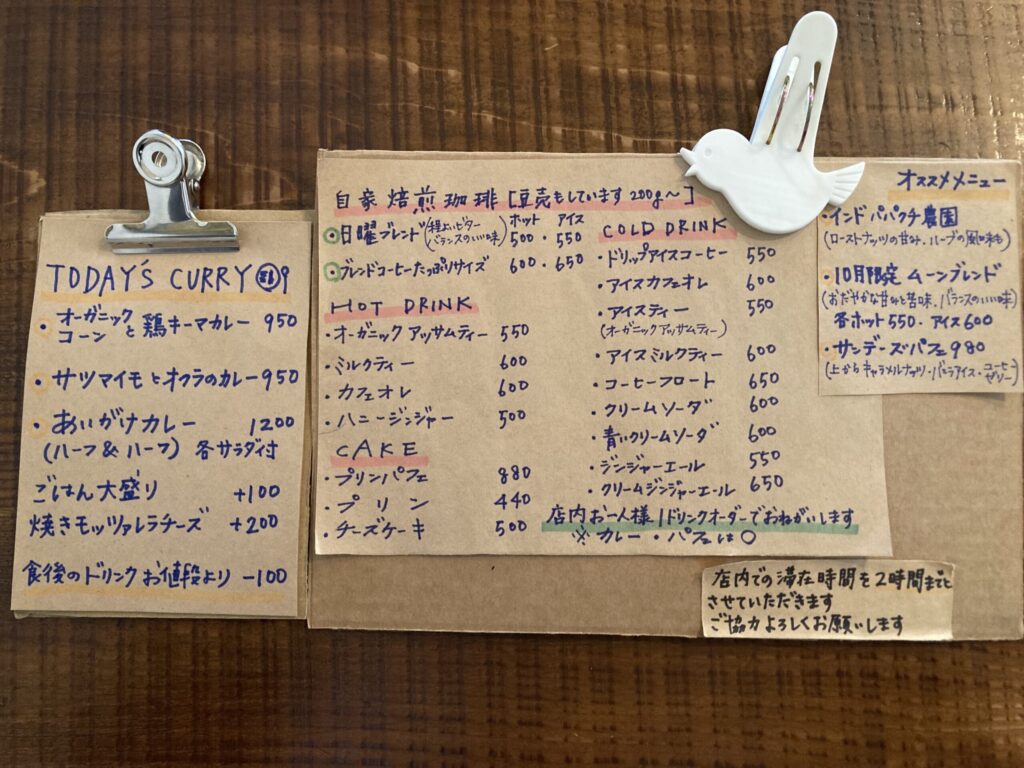 TODAY'S CURRY
・オーガニックコーンと鶏キーマカレー 950
・サツマイモとオクラのカレー 950
・あいがけカレー 1200
(ハーフ&ハーフ) 各サラダ付
ごはん大盛り +100
焼きモッツァレラチーズ +200
食後のドリンクお値段より -100
自家焙煎珈琲 [豆売もしています 200g〜]
ホット アイス
日曜ブレンド (程よいビター バランスのいい味) 500・550
ブレンドコーヒーたっぷりサイズ 600・650
HOT DRINK
・オーガニックアッサムティー 550
・ミルクティー 600
・カフェオレ 600
・ハニージンジャー 500
CAKE
・プリンパフェ 880
・プリン 440
・チーズケーキ 500
COLD DRINK
・ドリップアイスコーヒー 550
・アイスカフェオレ 600
・アイスティー 550
(オーガニックアッサムティー)
・アイスミルクティー 600
・コーヒーフロート 650
・クリームソーダ 600
・青いクリームソーダ 600
・ジンジャーエール 550
・クリームジンジャーエール 650
店内お一人様1ドリンクオーダーでおねがいします
※カレー・パフェは〇
オススメメニュー
・インドパパクチ農園
(ローストナッツの甘み、ハーブの風味も)
・10月限定 ムーンブレンド
(おだやかな甘みと苦味、バランスのいい味)
各ホット550・アイス600
・サンデーズパフェ980
(上からキャラメルナッツ・バニラアイス・コーヒーゼリー)
店内での滞在時間を2時間までと
させていただきます
ご協力よろしくお願いします